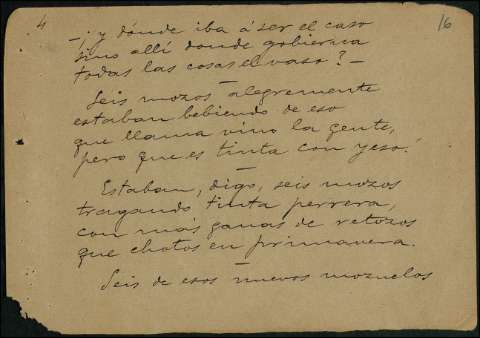 4
16
—¿y dónde iba á ser el caso
sino allí donde gobierna
todas las cosas el vaso?—
Seis mozos alegremente
estaban bebiendo de eso
que llama vino la gente,
pero que es tinta con yeso.
Estaban, digo, seis mozos
tragando tinta perrera,
con más ganas de retozos
que chotos en primavera.
Seis de esos nuevos mozuelos